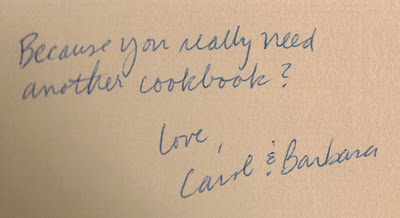 Because you really need
another cookbook?
Love,
Carol & Barbara